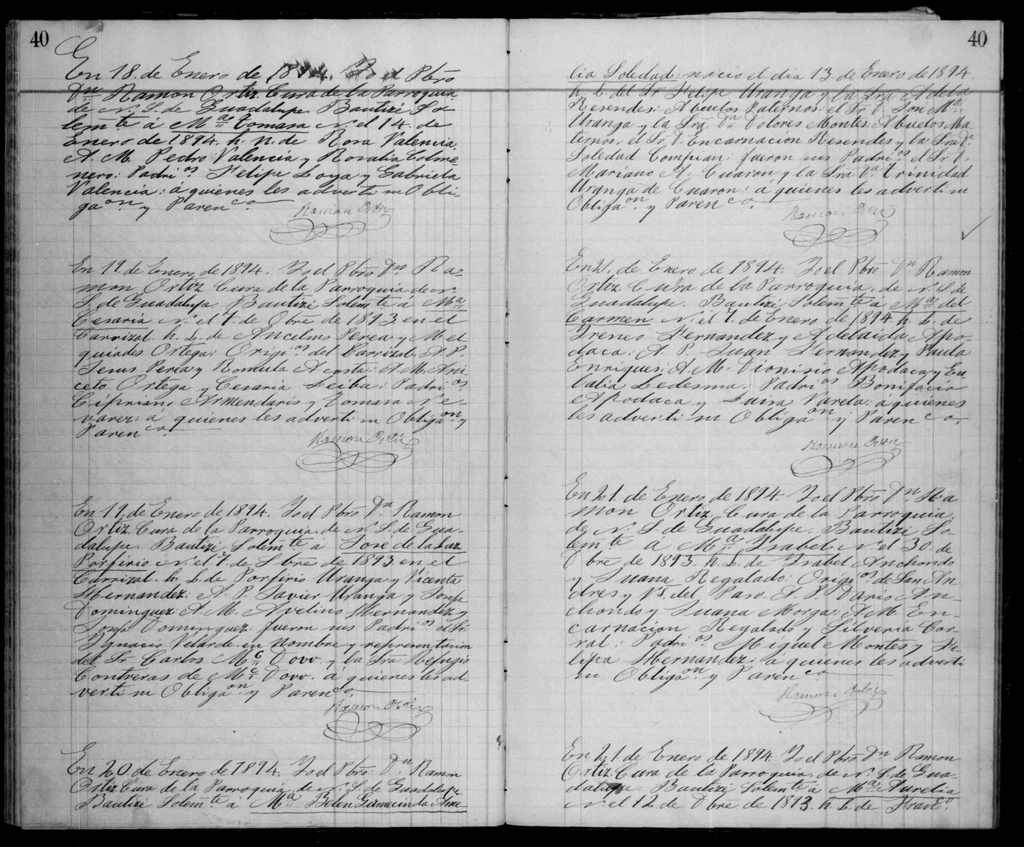 40
En 18. de Enero de 1894. Yo el Pbro
Dn Ramon Ortiz Cura de la Parroquia
de N. S. de Guadalupe Bautizé So-
lemte á Ma Tomasa N. el 14. de
Enero de 1894. h. n. de Rosa Valencia:
A. M. Pedro Valencia y Rosalia Colme
nero: Padrios Felipe Loya y Gabriela
Valencia: a quienes les adverti su Obli
gaon y Parenco
Ramon Ortiz
En 19. de Enero de 1894. Yo el Pbro Dn Ra-
mon Ortiz Cura de la Parroquia de N.
S. de Guadalupe Bautizé Solemte á Ma
Cesaria N. el 1. de Obre de 1893 en el
Carrizal h. L. de Ancelmo Perea y Mel
quiades Ortega: Origios del Carrizal: A. P.
Jesus Peria y Romula Acosta: A. M. Ani
ceto Ortega y Cesaria Leiba: Padrios
Cipriano Armendaris y Tomasa
varez: á quienes les adverti su Obligaon y
Parenco
Ramon Ortiz
En 19 de Enero de 1894. Yo el Pbro Dn Ramon
Ortiz Cura de la Parroquia de N. S. de Gua-
dalupe Bautizé Solemte á José de la Luz
Porfirio N. el 1. de Sbre de 1893 en el
Carrizal. h. L. de Porfirio Uranga y Vicenta
Hernandez: A. P. Javier Uranga y Josefa
Dominguez A. M. Avelino Hernandez y
Josefa Dominguez fueron sus Padrios el Sr
Ygnacio Velarde en Nombre y representacion
del Sr Carlos Mc Dovo y la Sra Refugio
Contreras de Mc Dovo. a quienes les ad-
verti su Obligaon y Parenco
Ramon Ortiz
En 20 de Enero de 1894. Yo el Pbro Dn Ramon
Ortiz Cura de la Parroquia de N. S. de Guadalupe
Bautizé Solemte á Ma Belen Gumecinda Ame
40
lia Soledad: nacio el dia 13 de Enero de 1894.
h. L. del Sr Felipe Uranga y la Sra Adela
Resendes: Abuelos Paternos: el Sr D. José Ma
Uranga y la Sra Da Dolores Montes: Abuelos Ma
ternos. el Sr D. Encarnacion Resendes y la Sra Da
Soledad Compian: fueron sus Padrios el Sr D.
Mariano A. Cuaron y la Sra Da Trinidad
Uranga de Cuaron: a quienes les adverti su
Obligaon y Parenco
Ramon Ortiz
En 21. de Enero de 1894. Yo el Pbro Dn Ramon
Ortiz Cura de la Parroquia. de N. S. de
Guadalupe. Bautizé Solemte á Ma del
Carmen N. el 7. de Enero de 1894 h. L. de
Yreneo Hernandez y Adelaida Apo-
daca: A. P. Juan Hernandez y Paula
Enriquez: A. M. Dionicio Apodaca y Eu
lalia Ledesma: Padrios Bonifacio
Apodaca y Luisa Varela: a quienes
les adverti su Obligaon y Parenco
Ramon Ortiz
En 21. de Enero de 1894. Yo el Pbro Dn Ra
mon Ortiz, Cura de la Parroquia
de N. S. de Guadalupe. Bautizé So-
lemte á Ma Ysabel N. el 30. de
Obre de 1893. h. L. de Ysabel Anchondo
y Juana Regalado: Origios de San An
dres y Vs. del Paso. A. P. Dario An-
chondo y Juana Morga: A. M. En-
carnacion Regalado y Silveria Cor-
ral: Padrios Miguel Montes y Fe-
lipa Hernandez. a quienes les adverti
su Obligaon y Parenco
Ramon Ortiz
En 21 de Enero de 1894 Yo el Pbro Dn Ramon
Ortiz Cura de la Parroquia. de N. S. de Gua-
dalupe Bautizé Solemte á Ma Aurelia
N. el 12 de Obre de 1893. h. L. de